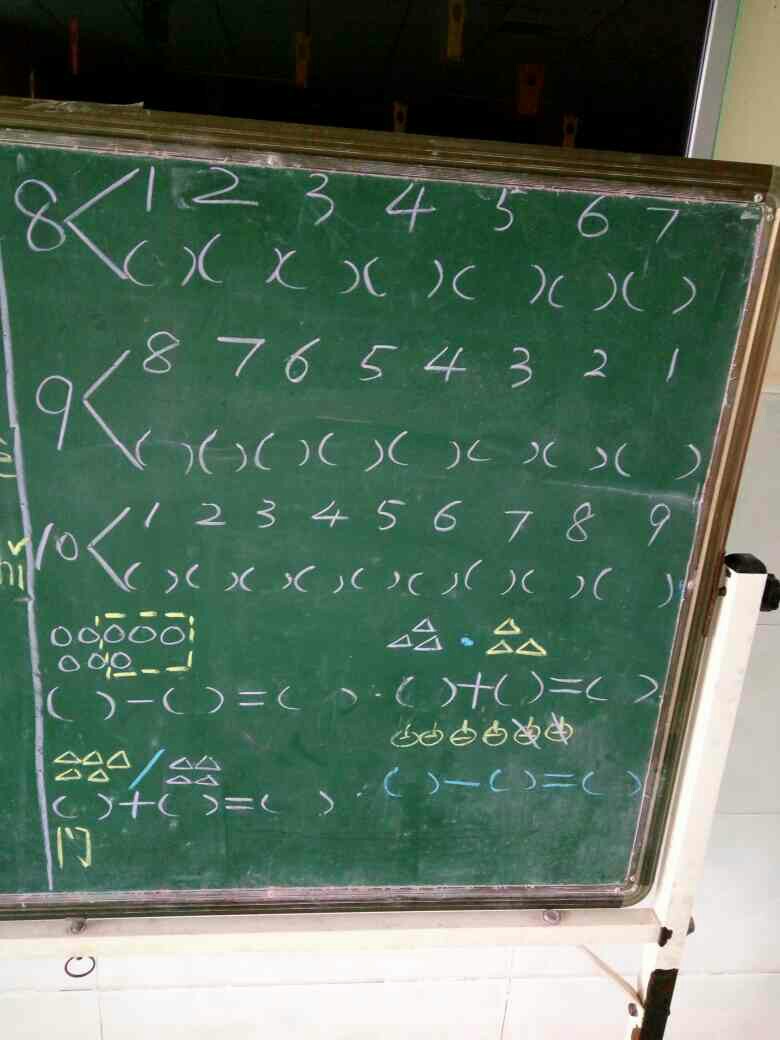 8 < 1 2 3 4 5 6 7
( )( )( )( )( )( )( )
9 < 8 7 6 5 4 3 2 1
( )( )( )( )( )( )( )( )
10 < 1 2 3 4 5 6 7 8 9
( )( )( )( )( )( )( )( )( )
( )-( )=( ) · ( )+( )=( )
( )+( )=( ) · ( )-( )=( )
门